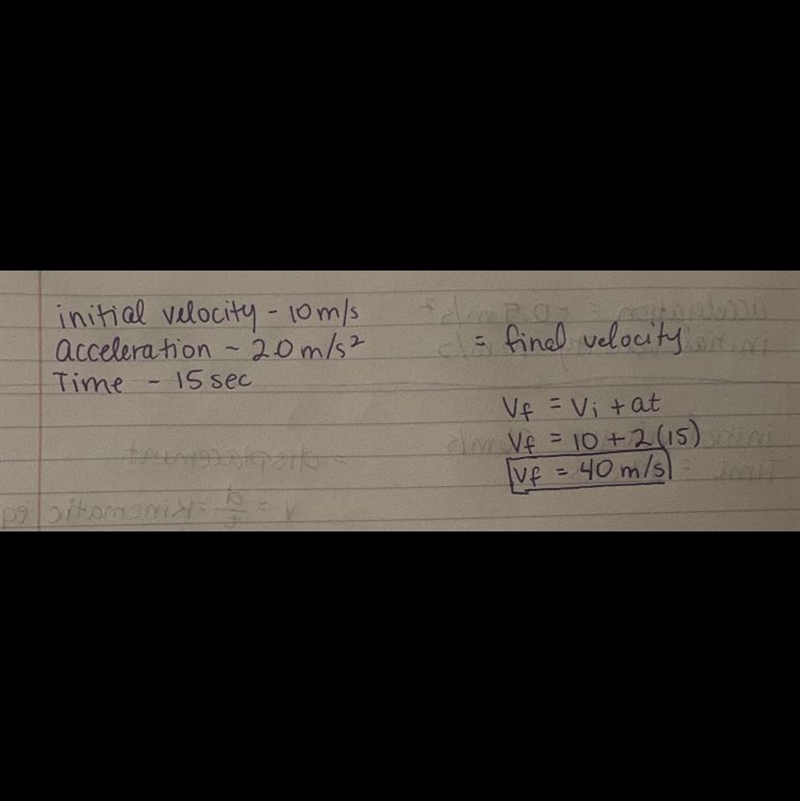 initial velocity - 10 m/s
acceleration - 2.0 m/s²
Time - 15 sec
= final velocity
Vf = Vi + at
Vf = 10 + 2(15)
Vf = 40 m/s